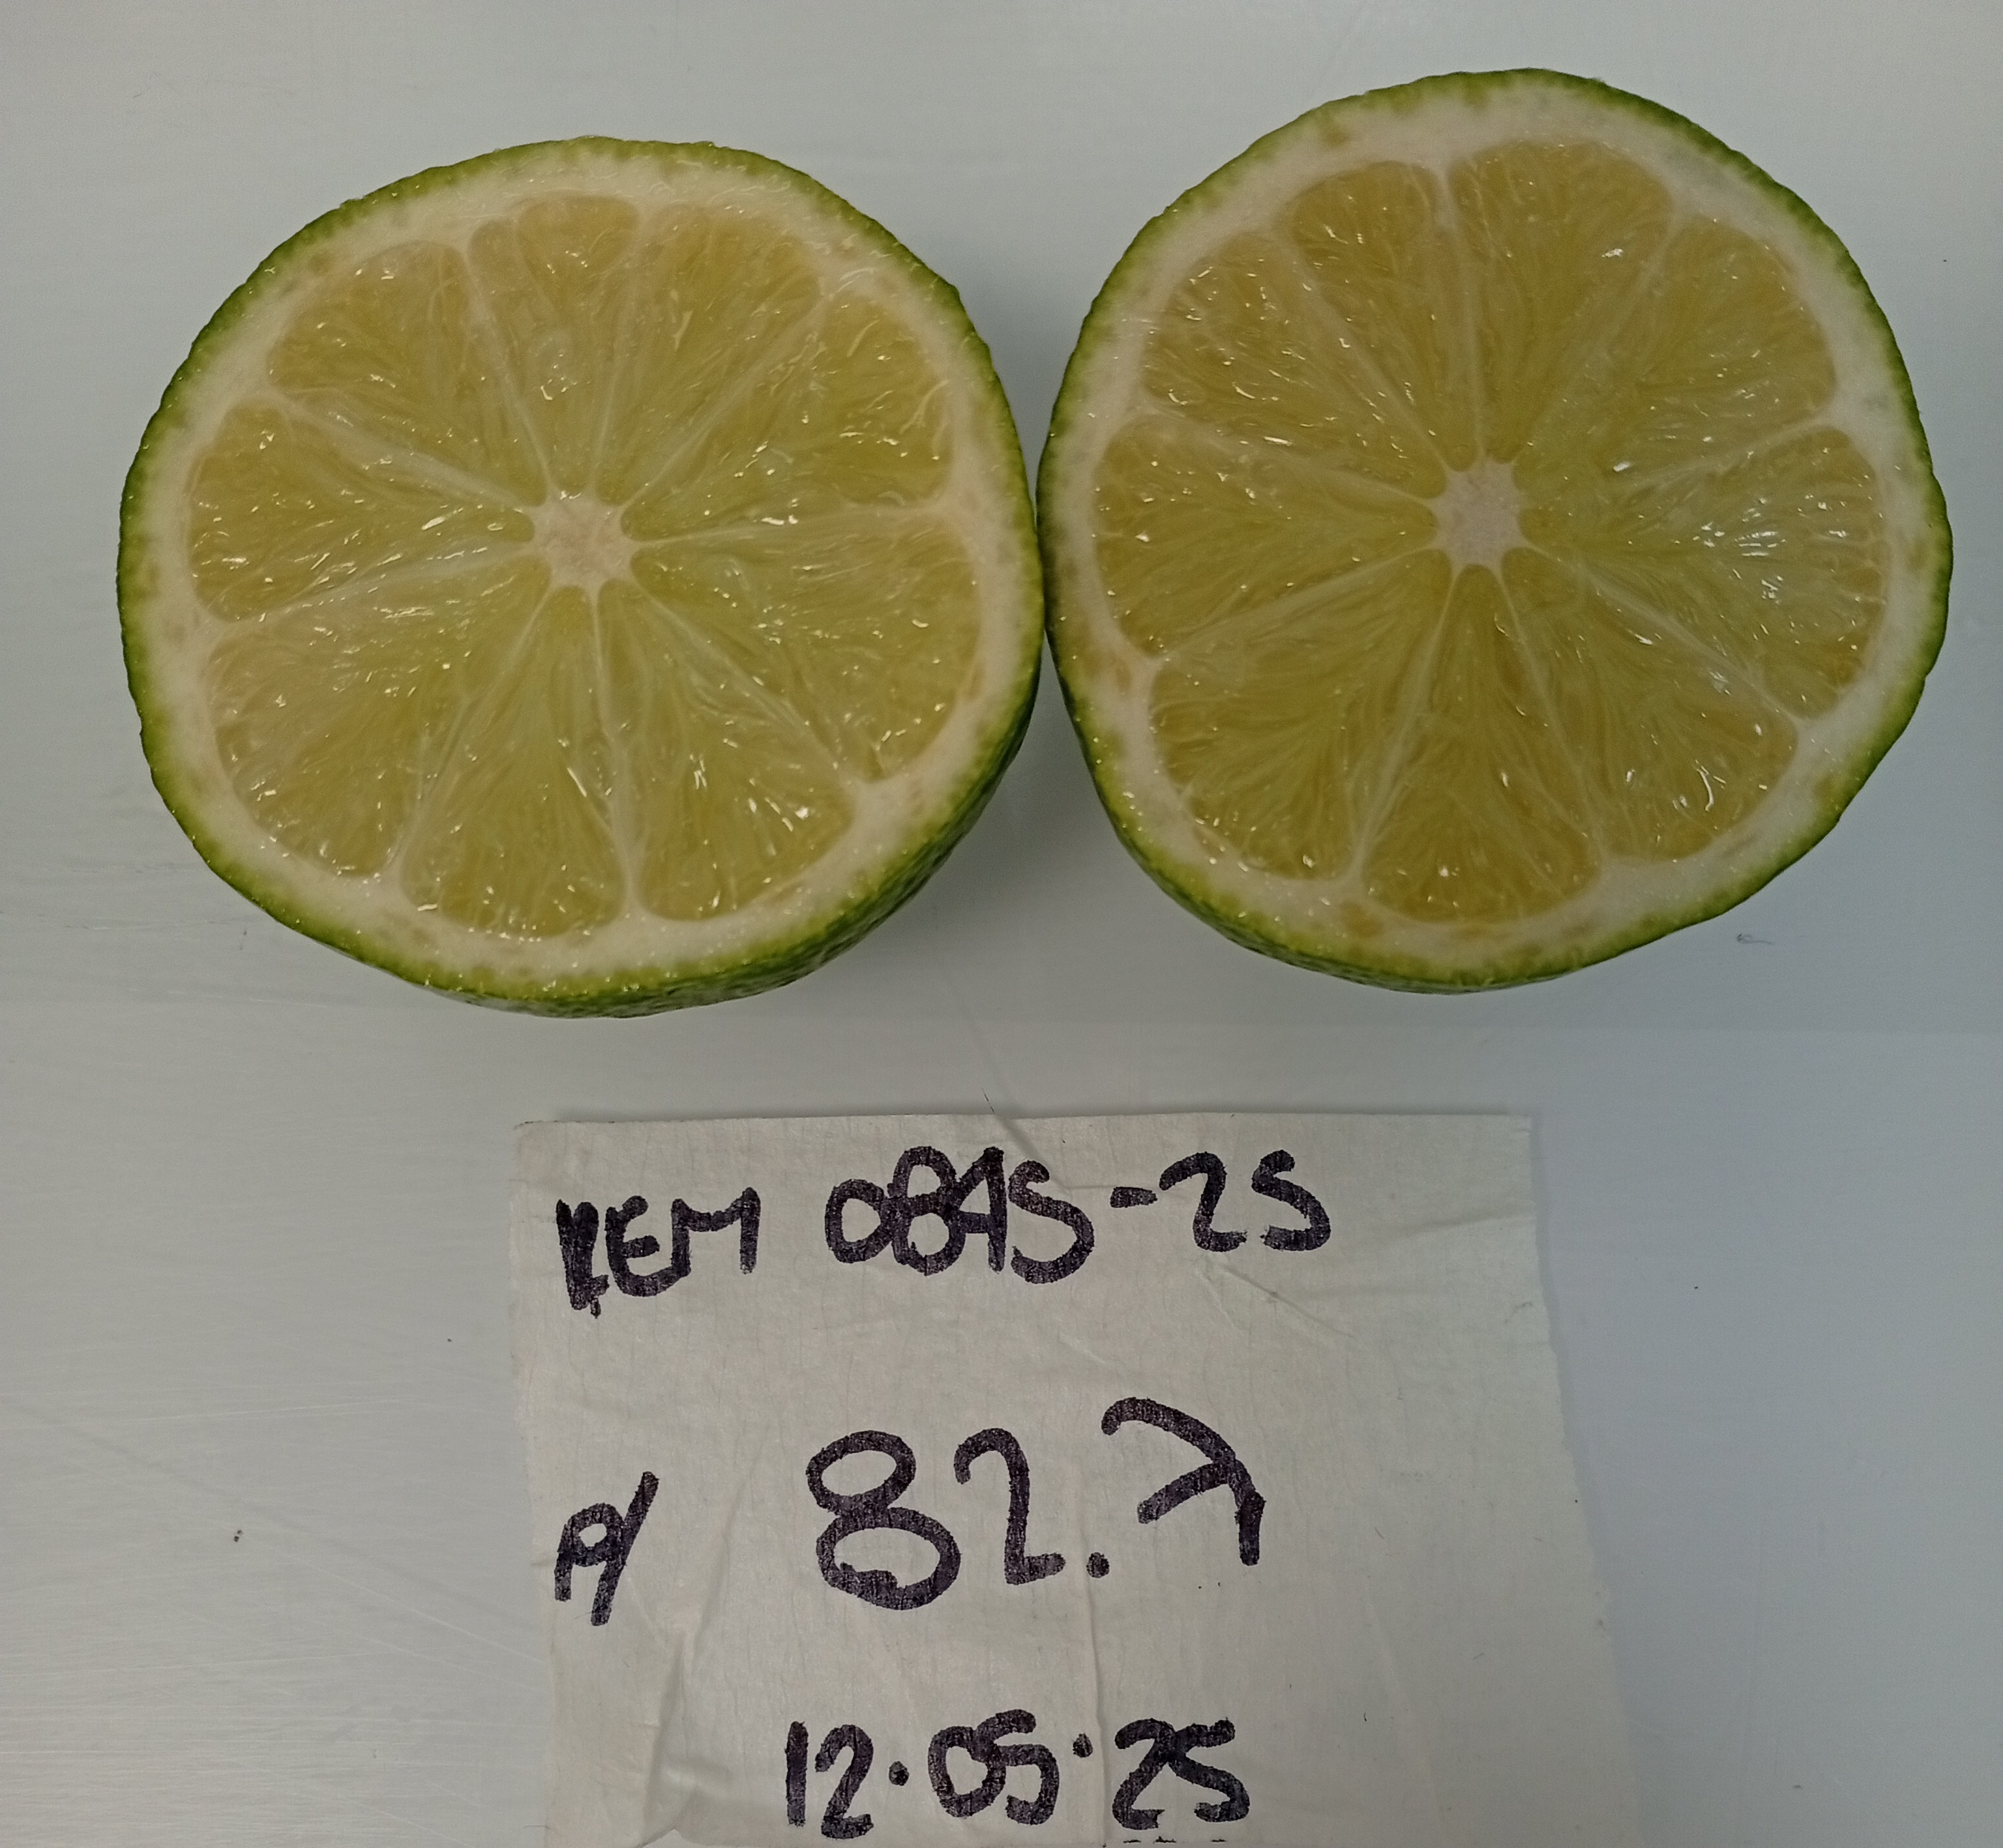 REM 0845-25
P/ 82.7
12.05.25